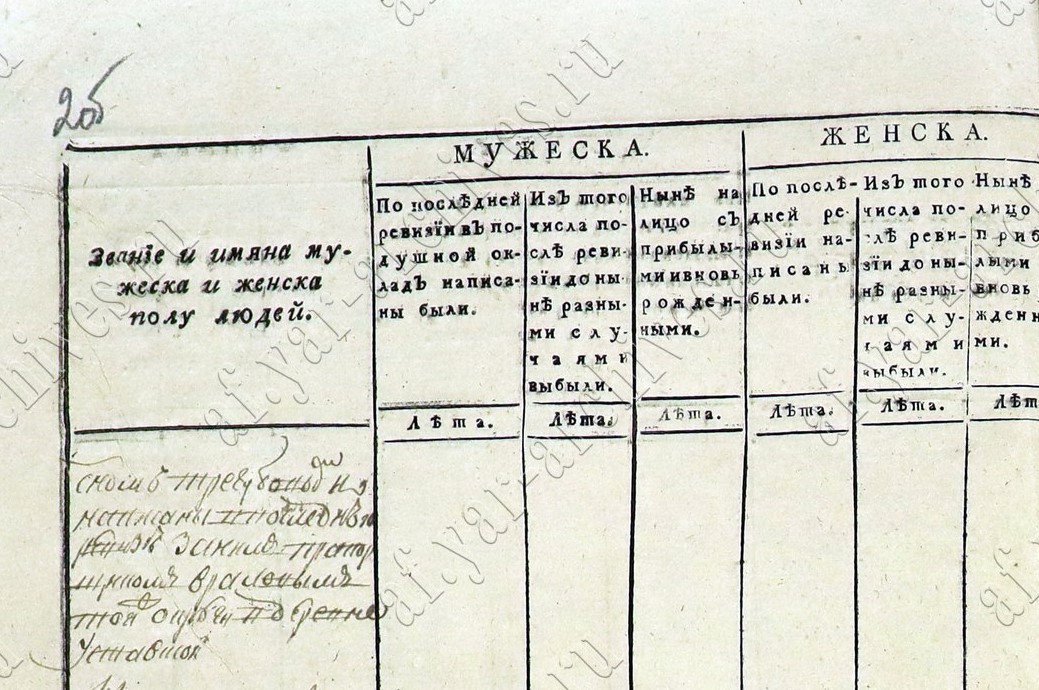 20б
МУЖЕСКА.
ЖЕНСКА.
Званїе и имяна му-
жеска и женска
полу людей.
По послѣдней
ревизїи въ по-
душной ок-
ладъ написа-
ны были.
Изъ того
числа по-
слѣ реви-
зїи доны-
нѣ разны-
ми слу-
чаями
выбыли.
Нынѣ на
лицо съ
прибылы-
ми и вновь
рожден-
ными.
По послѣ-
дней ре-
визїи на-
писаны
были.
Изъ того
числа по-
слѣ реви-
зїи доны-
нѣ разны-
ми слу-
чаями
выбыли.
Нынѣ
лицо
приб
лыми
вновь
жденн
ми.
Лѣта.
Лѣта.
Лѣта.
Лѣта.
Лѣта.
Лѣт
скомъ
написаны
ревизїи за
той округи